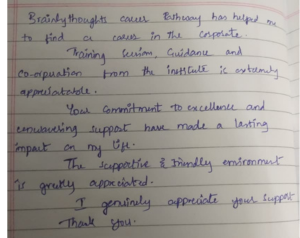 Brainythoughts career Pathway has helped me
to find a career in the corporate.
Training session, Guidance and
Co-orperation from the institute is extremely
appreciatable.
Your commitment to excellence and
unwavering support have made a lasting
impact on my life.
The supportive & friendly environment
is greatly appreciated.
I genuinely appreciate your support
Thank you.